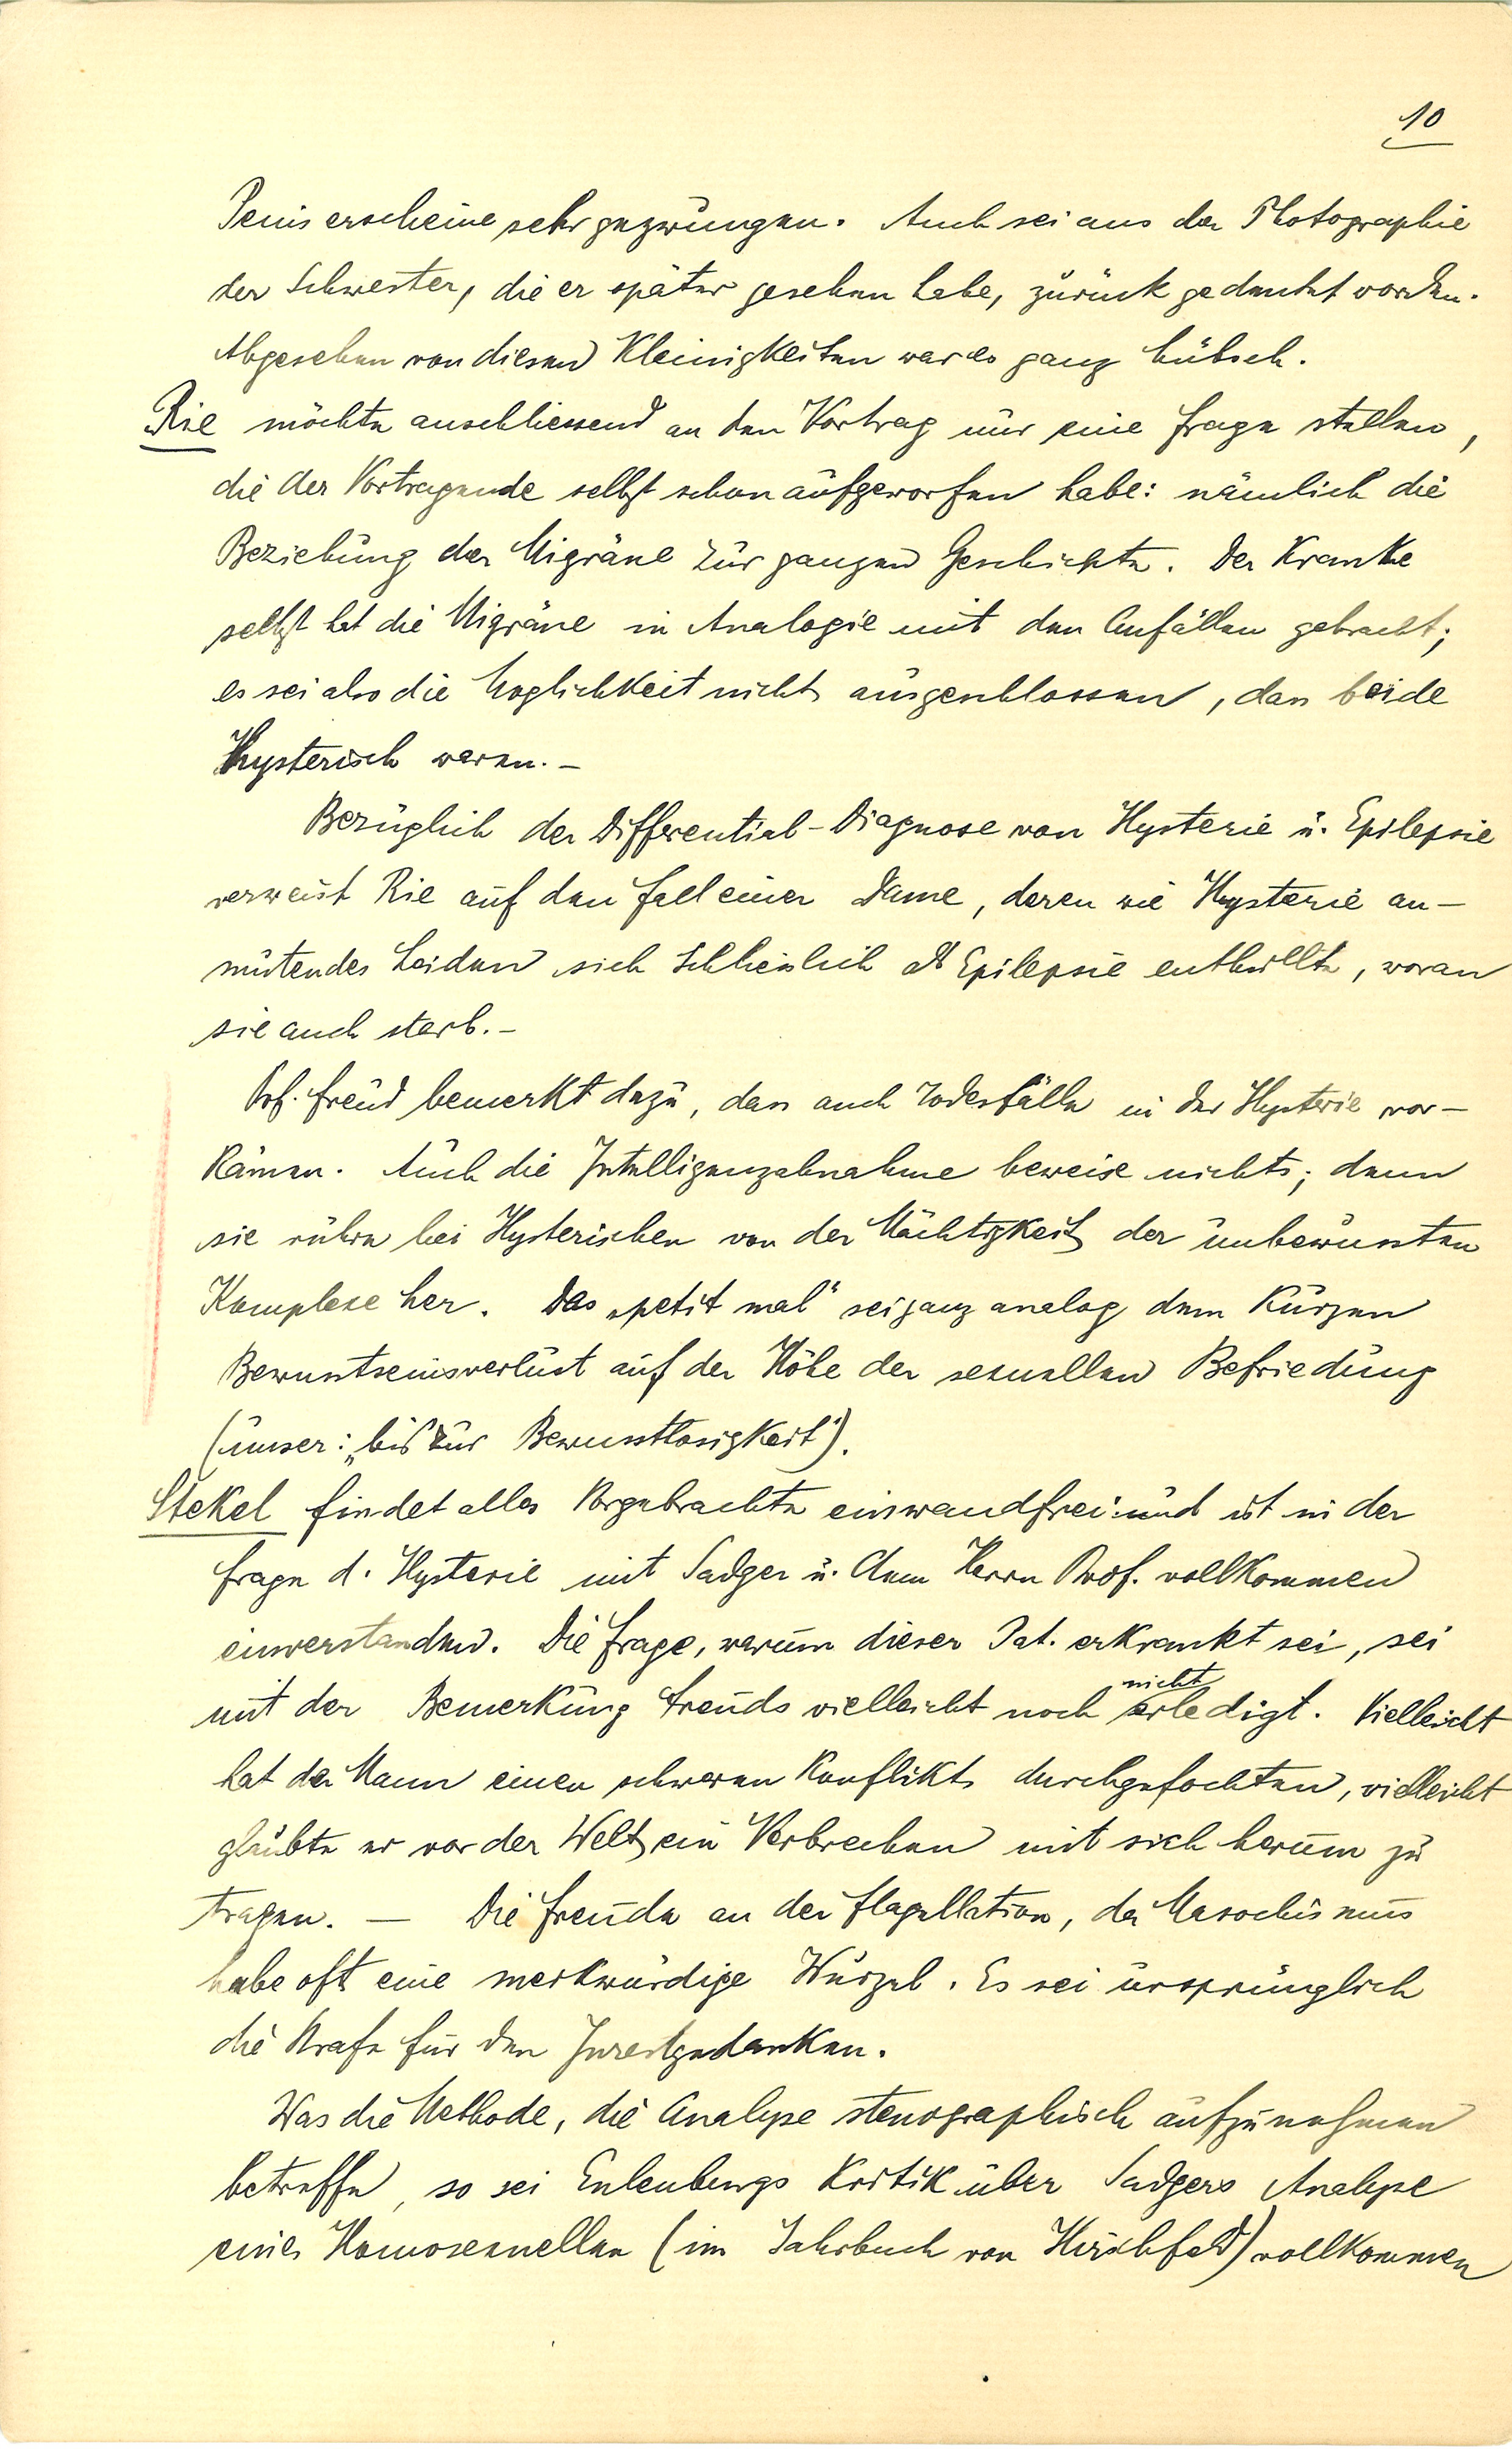 10
Penis erscheine sehr gezwungen. Auch sei aus der Photographie
der Schwester, die er später gesehen habe, zurück gedeutet worden.
Abgesehen von diesen Kleinigkeiten war es ganz hübsch.
Rie möchte anschliessend an den Vortrag nur eine Frage stellen,
die der Vortragende selbst schon aufgeworfen habe: nämlich die
Beziehung der Migräne zur ganzen Geschichte. Der Kranke
selbst hat die Migräne in Analogie mit den Anfällen gebracht;
es sei also die Möglichkeit nicht ausgeschlossen, dass beide
Hysterisch waren. –
Bezüglich der Differential-Diagnose von Hysterie u. Epilepsie
verweist Rie auf den Fall einer Dame, deren wie Hysterie an-
mutendes Leiden sich schliesslich als Epilepsie enthüllte, woran
sie auch starb. –
Prof. Freud bemerkt dazu, dass auch Todesfälle in der Hysterie vor-
kämen. Auch die Intelligenzabnahme beweise nichts; denn
sie rühre bei Hysterischen von der Mächtigkeit der unbewussten
Komplexe her. Das „petit mal“ sei ganz analog dem kurzen
Bewusstseinsverlust auf der Höhe der sexuellen Befriedung
(unser: „bis zur Bewusstlosigkeit“).
Stekel findet alles Vorgebrachte einwandfrei und ist in der
Frage d. Hysterie mit Sadger u. dem Herrn Prof. vollkommen
einverstanden. Die Frage, warum dieser Pat. erkrankt sei, sei
mit der Bemerkung Freuds vielleicht noch nicht erledigt. Vielleicht
hat der Mann einen schweren Konflikt durchgefochten, vielleicht
glaubte er vor der Welt ein Verbrechen mit sich herum zu
tragen. — Die Freude an der Flagellation, der Masochismus
habe oft eine merkwürdige Wurzel. Es sei ursprünglich
die Strafe für den Inzestgedanken.
Was die Methode, die Analyse stenographisch aufzunehmen
betreffe, so sei Eulenburgs Kritik über Sadgers Analyse
eines Homosexuellen (im Jahrbuch von Hirschfeld) vollkommen